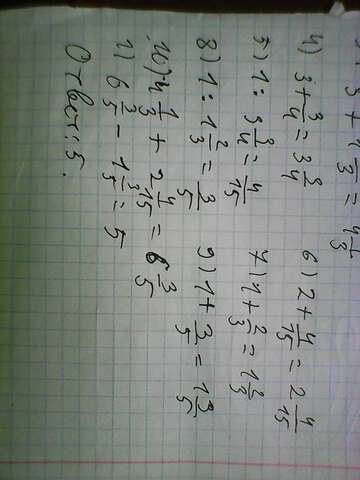 3 + 1 1/3 = 4 1/3
4) 3 + 3/4 = 3 3/4 6) 2 + 4/15 = 2 4/15
5) 1 : 3 3/4 = 4/15 7) 1 + 2/3 = 1 2/3
8) 1 : 1 2/3 = 3/5 9) 1 + 3/5 = 1 3/5
10) 4 1/3 + 2 4/15 = 6 3/5
11) 6 3/5 - 1 3/5 = 5
Ответ: 5.